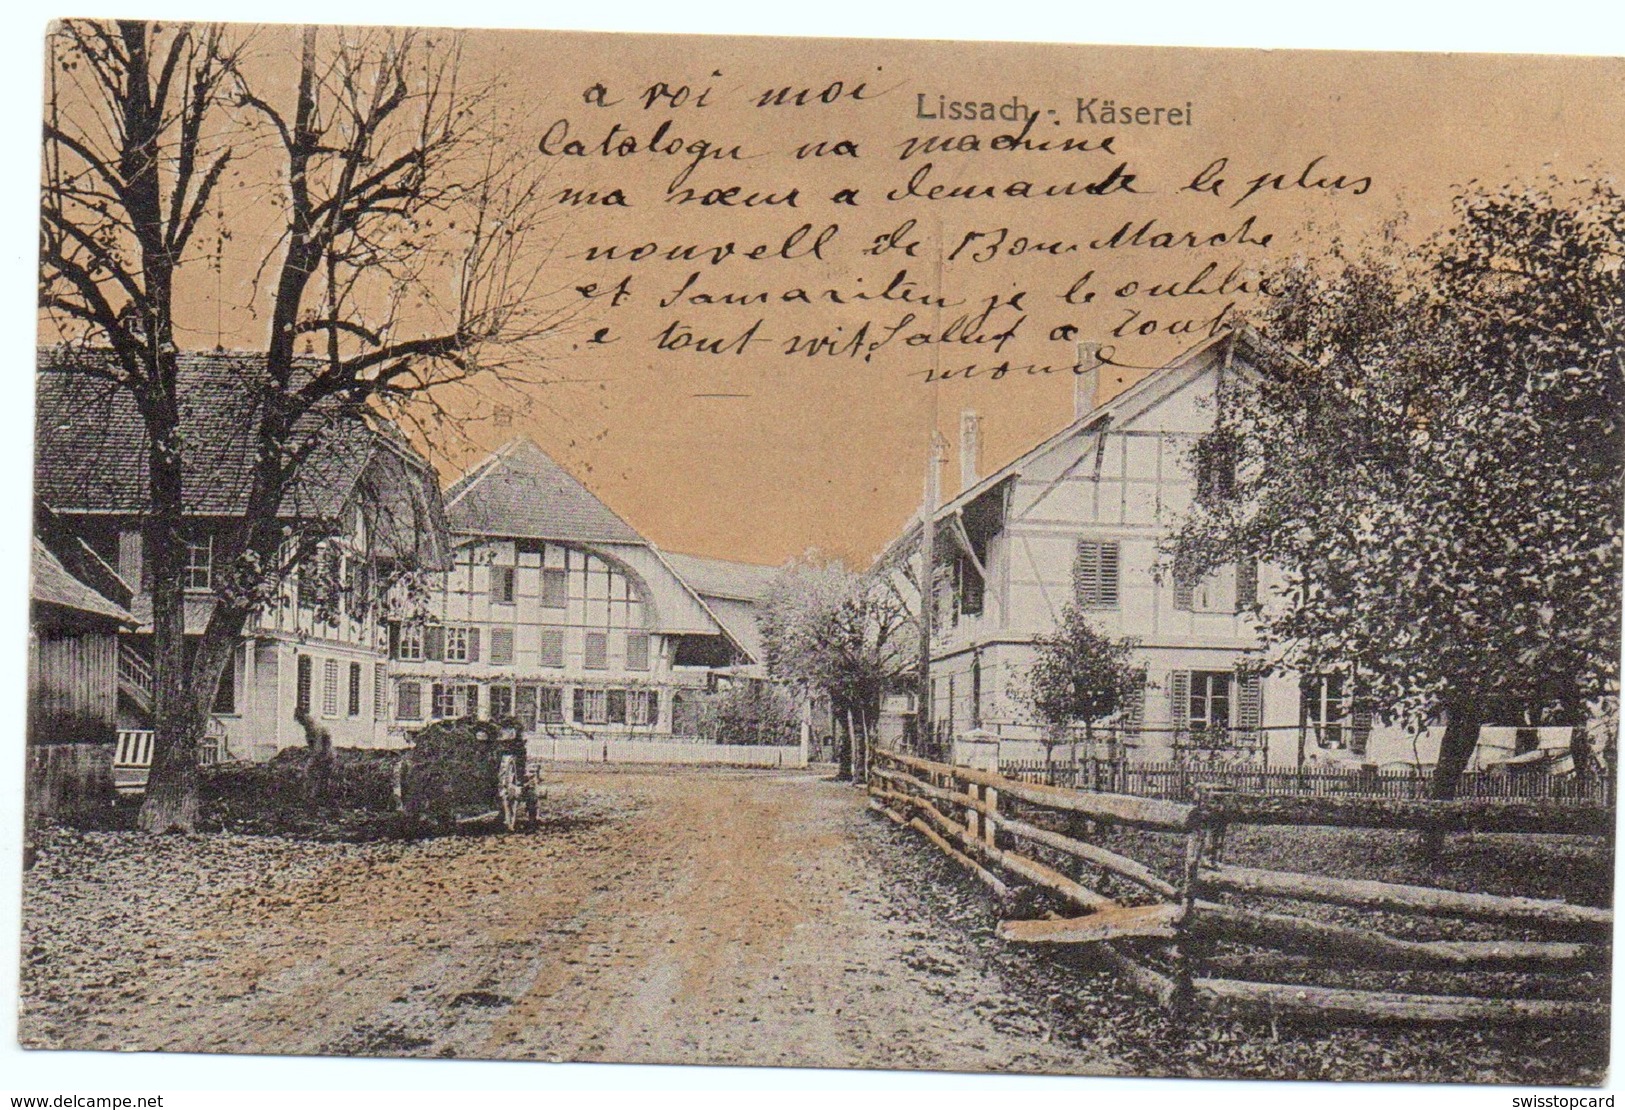 a voi moi
Lissach - Käserei
Catalogu na machine
ma sœur a demande le plus
nouvell de Bon Marche
et Samariten je le oublie
e tout svit. Salut a tout
mond.
www.delcampe.net
swisstopcard